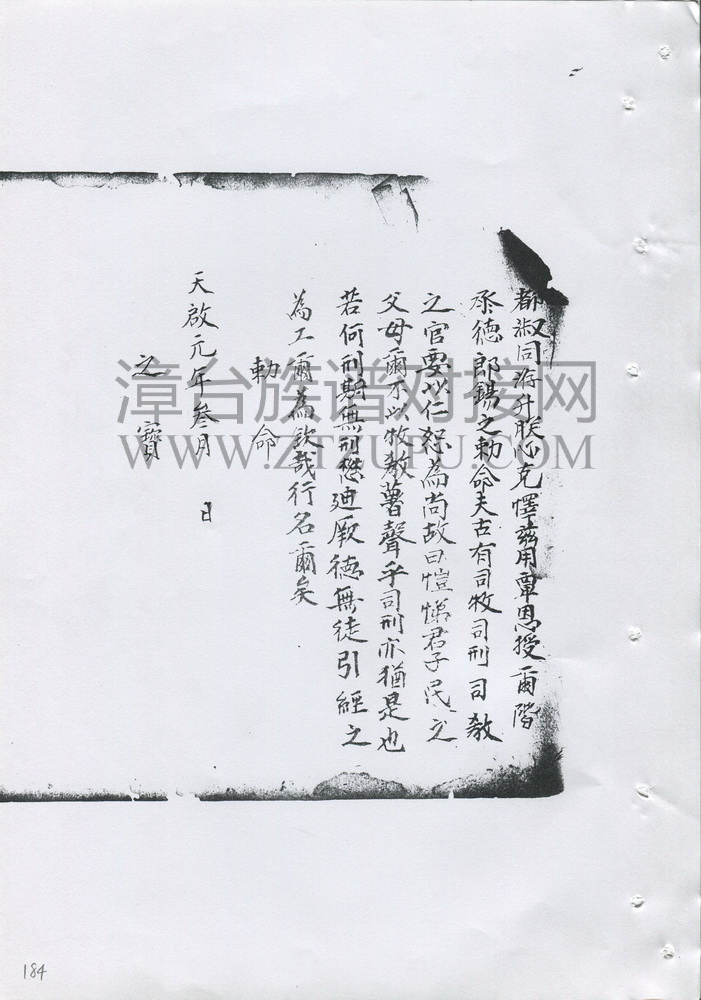 都淑同游升朕心克懌兹用覃恩授爾階
承德郎錫之勅命夫古有司牧司刑司教
之官要以仁恕為尚故曰愷悌君子民之
父母爾不以牧教著聲乎司刑亦猶是也
若何刑期無刑懋廸厥德無徒引經之
為工爾為欽哉行名爾矣
勅命
天啟元年叁月 日
之寶
漳台族谱对接网
WWW.ZTZUPU.COM
184